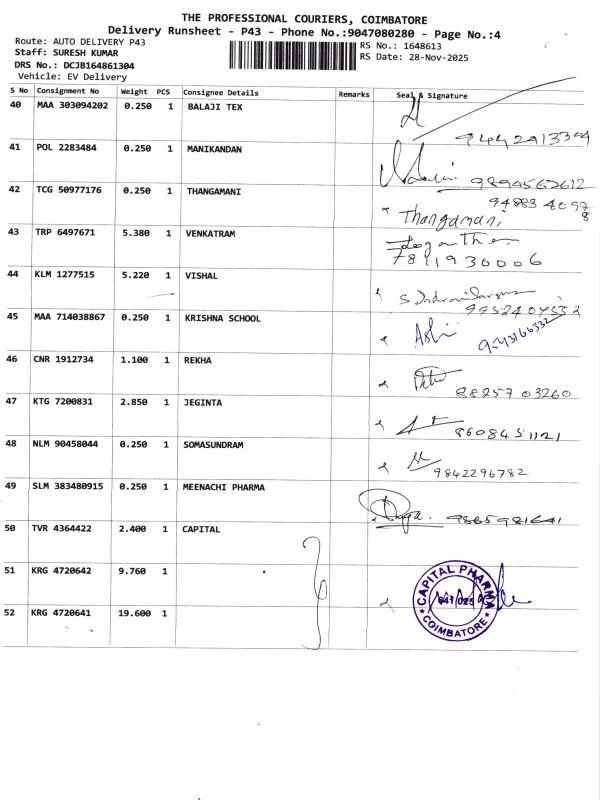 THE PROFESSIONAL COURIERS, COIMBATORE
Delivery Runsheet - P43 - Phone No.:9047080280 - Page No.:4
Route: AUTO DELIVERY P43
Staff: SURESH KUMAR
DRS No.: DCJB164861304
Vehicle: EV Delivery
RS No.: 1648613
RS Date: 28-Nov-2025
S No Consignment No Weight PCS Consignee Details Remarks Seal & Signature
40 MAA 303094202 0.250 1 BALAJI TEX
41 POL 2283484 0.250 1 MANIKANDAN
9894562612
42 TCG 50977176 0.250 1 THANGAMANI
Thangamani
43 TRP 6497671 5.380 1 VENKATRAM
7811930006
44 KLM 1277515 5.220 1 VISHAL
45 MAA 714038867 0.250 1 KRISHNA SCHOOL
46 CNR 1912734 1.100 1 REKHA
47 KTG 7200831 2.850 1 JEGINTA
8608451121
48 NLM 90458044 0.250 1 SOMASUNDRAM
9842296782
49 SLM 383480915 0.250 1 MEENACHI PHARMA
50 TVR 4364422 2.400 1 CAPITAL
51 KRG 4720642 9.760 1
CAPITAL PHARMA
641 025
COIMBATORE
52 KRG 4720641 19.600 1